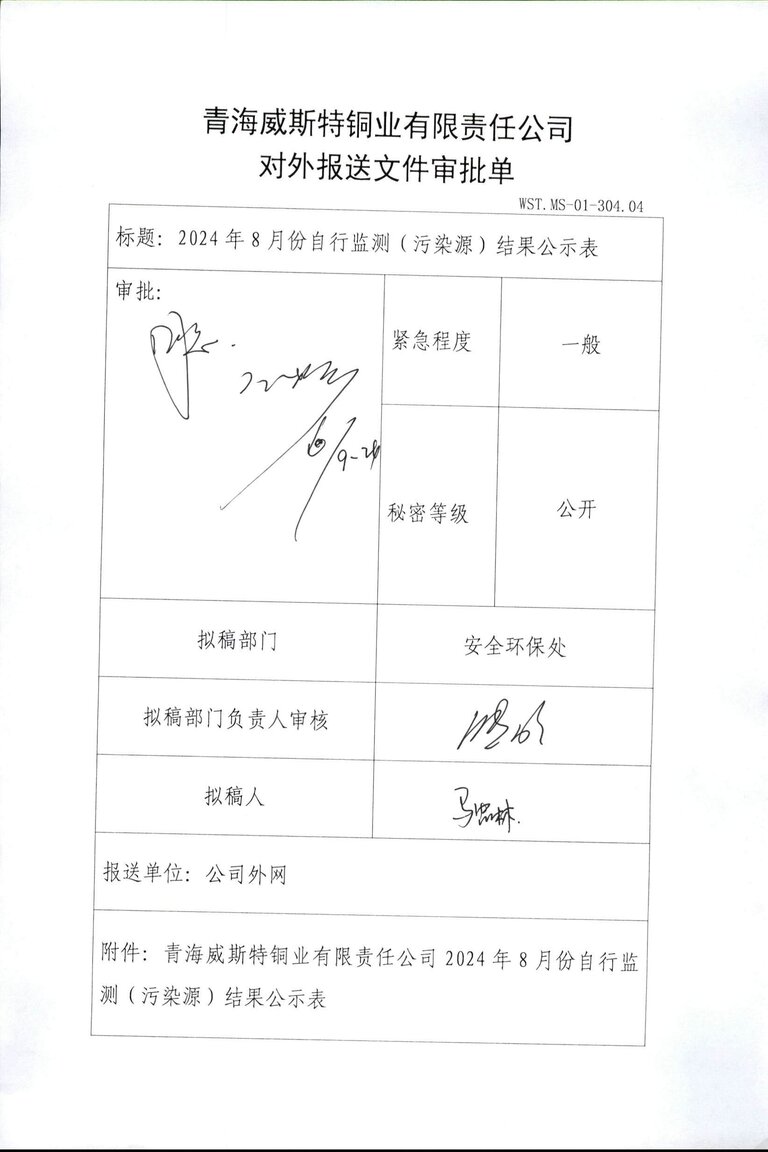 青海威斯特铜业有限责任公司
对外报送文件审批单
WST.MS-01-304.04
标题：2024年8月份自行监测（污染源）结果公示表
审批：
紧急程度
一般
6/9-24
秘密等级
公开
拟稿部门
安全环保处
拟稿部门负责人审核
拟稿人
马忠林.
报送单位：公司外网
附件：青海威斯特铜业有限责任公司2024年8月份自行监
测（污染源）结果公示表